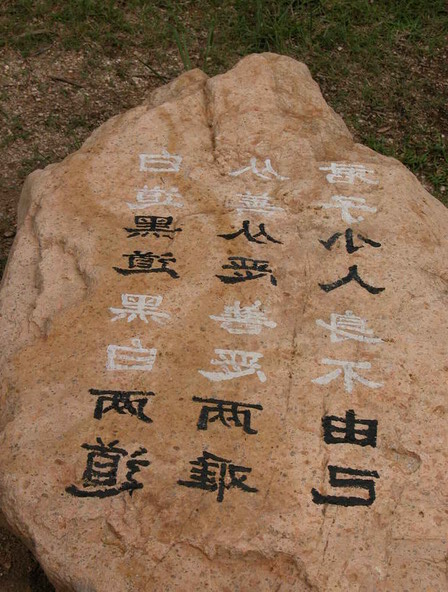 君子小人身不由己
从善从恶善恶两难
白道黑道黑白两道